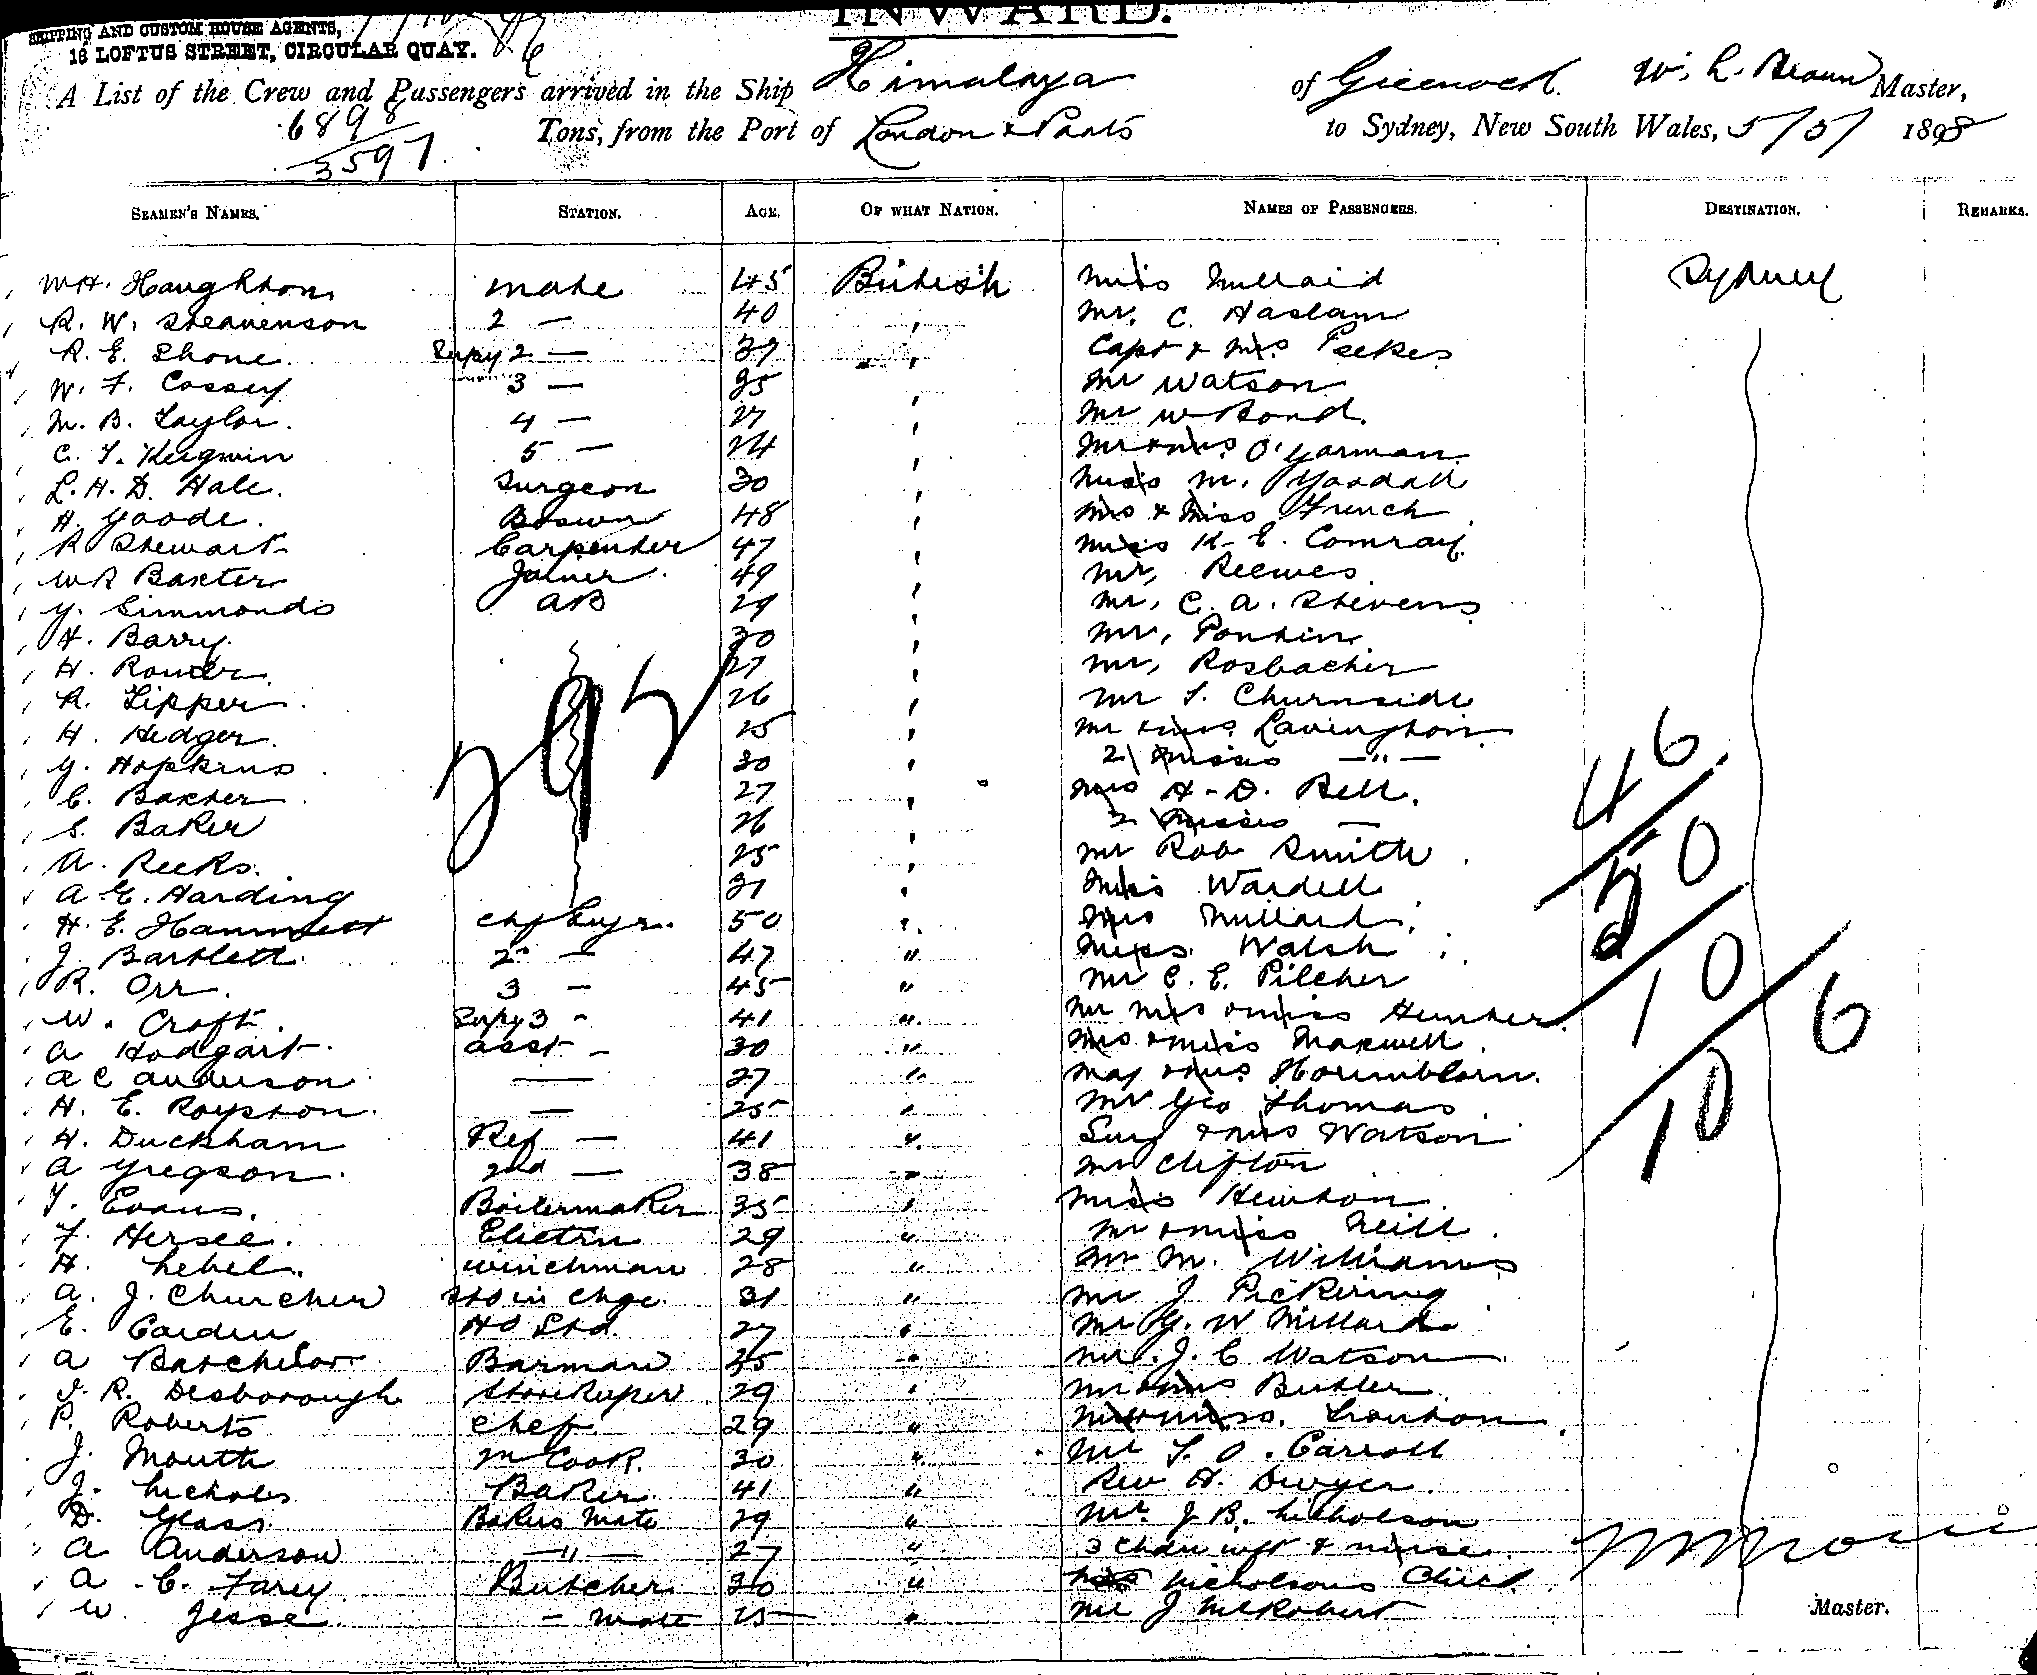 INWARD.
SHIPPING AND CUSTOM HOUSE AGENTS,
18 LOFTUS STREET, CIRCULAR QUAY.
A List of the Crew and Passengers arrived in the Ship Himalaya of Greenock W. L. Braun Master,
6898
3597 Tons, from the Port of London & Ports to Sydney, New South Wales, 5/5/ 1898
SEAMEN'S NAMES. STATION. AGE. OF WHAT NATION. NAMES OF PASSENGERS. DESTINATION. REMARKS.
W H. Haughton mate 45 British Miss Sydney
R. W. Steavenson 2 — 40 , Mr. C. Haslam
R. E. Shone Supy 2 — 39 , Capt & Mrs
W. F. Cossey 3 — 35 , Mr Watson
M. B. Taylor. 4 — 27 , Mr W Bond.
C. T. 5 — 24 , Mr & Mrs O'Gorman
L. H. D. Hale. Surgeon 30 , Miss M. Goodall
H Goode. Boswn 48 , Mrs & Miss French
R Stewart Carpenter 47 , Miss K. E. Comray
W R Baxter Joiner 49 , Mr, Reeves
G. Simmonds AB 29 , Mr, C. A. Stevens
H. Barry. 30 , Mr,
H. 27 , Mr, Rosbacher
R. Lipper 26 , Mr T. Churnside
H. Hedger. 25 , Mr & Mrs Lavington
G. Hopkins 30 , 2 Misses —"—
C. Baxter 27 , Mrs H. D. Bell.
S. Baker 26 , 2 Misses —
A. Reeks. 25 , Mr Rob Smith
A E. Harding 31 , Miss Wardell
H. E. Hammett Chf Engr. 50 , Mrs Millard
J. Bartlett 2 — 47 " Miss Walsh
R. Orr. 3 — 45 " Mr C. E. Pilcher
W. Croft. Supy 3 - 41 " Mr Mrs & Miss Hunter
A Hodgart asst - 30 " Mrs & Miss Maxwell
A C Anderson — 27 " Maj & Mrs
H. E. Royston — 25 " Mr Geo Thomas
H. Duckham Ref — 41 " Surg & Mrs Watson
A Gregson. 2nd — 38 " Mr Clifton
T. Evans. Boilermaker 35 " Miss Hewton
F. Hersee. Electrn 29 " Mr & Miss Neill
H. Lebel. winchman 28 " Mr M. Williams
A. J. Churcher Std in Chge. 31 " Mr J Pickering
E. Carden Hd Std. 27 " Mr G. W Millard
A Batchelor Barman 35 " Mr. J. C Watson
J. R. Desborough Storekeeper 29 " Mr & Mrs Butler
P. Roberts chef 29 "
J. Mouth M Cook 30 " Mr T. O. Carroll
J. Nicholls Baker 41 " Rev H. Dwyer
D. Glass Bakers Mate 29 " Mr. J. B. Nicholson
A Anderson —"— 27 " 3 Chdn inft & nurse
A. C. Farey Butcher 30 " Nicholsons Child
W. Jesse. — mate 25 " Mr J McRobert
297
46
50
10 6
10
Master.